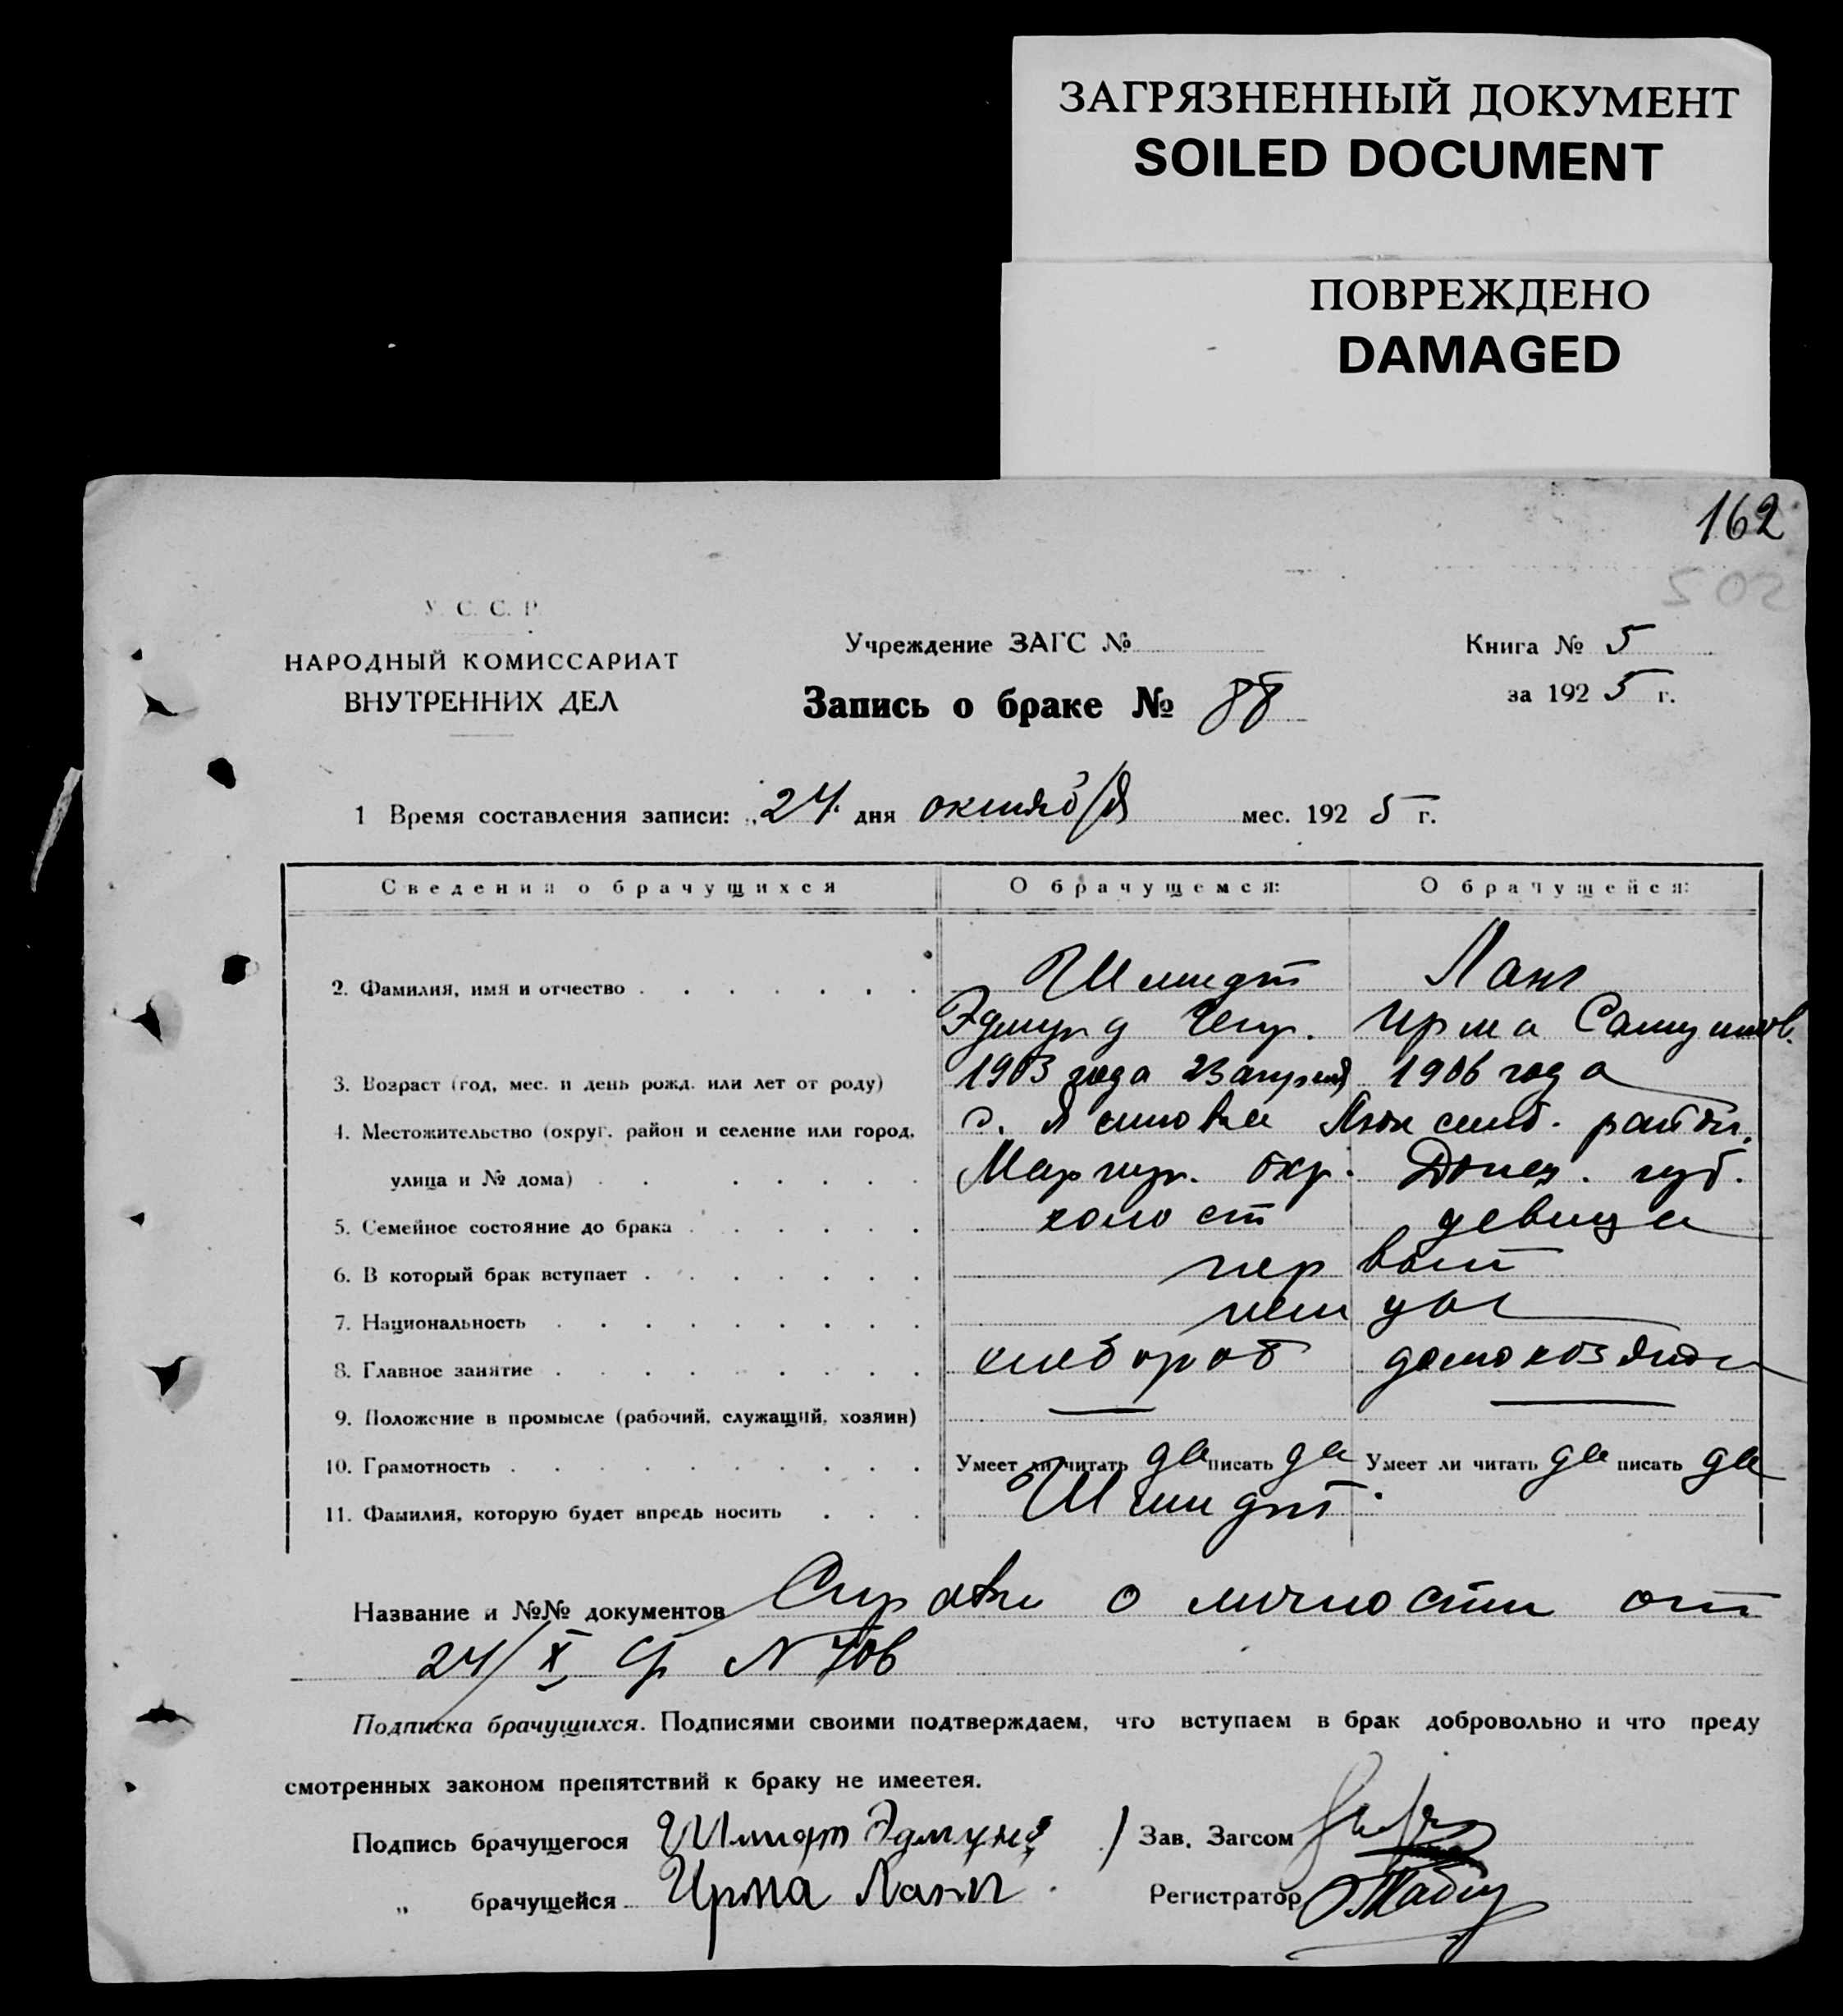 ЗАГРЯЗНЕННЫЙ ДОКУМЕНТ
SOILED DOCUMENT
ПОВРЕЖДЕНО
DAMAGED
162
502
У. С. С. Р.
НАРОДНЫЙ КОМИССАРИАТ
ВНУТРЕННИХ ДЕЛ
Учреждение ЗАГС №
Книга № 5
за 1925 г.
Запись о браке № 88
1 Время составления записи: „24 дня октября мес. 1925 г.
Сведения о брачущихся О брачущемся: О брачущейся:
2. Фамилия, имя и отчество Шмидт Ланг
Эдмунд Генр. Ирма Самуилов.
3. Возраст (год, мес. и день рожд. или лет от роду) 1903 года 23 апреля 1906 года
4. Местожительство (округ, район и селение или город, с. Люксемб. район.
улица и № дома) Мариуп. окр. Донец. губ.
5. Семейное состояние до брака холост девица
6. В который брак вступает первый
7. Национальность немцы
8. Главное занятие хлебороб домохозяйка
9. Положение в промысле (рабочий, служащий, хозяин) — —
10. Грамотность Умеет ли читать да писать да Умеет ли читать да писать да
11. Фамилия, которую будет впредь носить Шмидт.
Название и №№ документов Справки о личности от
24/X N 706
Подписка брачущихся. Подписями своими подтверждаем, что вступаем в брак добровольно и что преду
смотренных законом препятствий к браку не имеетея.
Подпись брачущегося Шмидт Эдмунд Зав. Загсом
„ брачущейся Ирма Ланг Регистратор